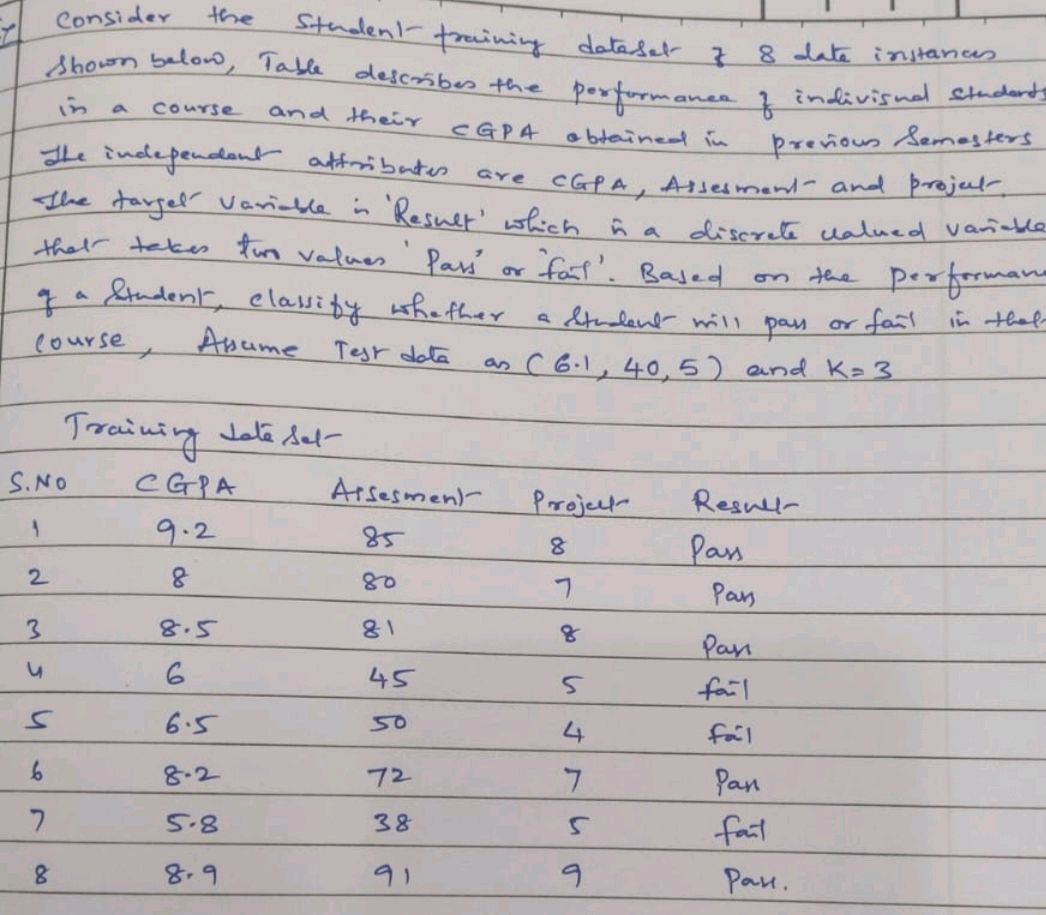 Consider the Student training dataset of 8 data instances
shown below, Table describes the performance of indivisual students
in a course and their CGPA obtained in previous Semesters
The independent attributes are CGPA, Assesment and project.
The target variable is 'Result' which is a discrete valued variable
that takes two values 'Pass' or 'fail'. Based on the performan
of a Student, classify whether a student will pass or fail in that
course, Assume Test data as (6.1, 40, 5) and K=3
Training data set
S.NO CGPA Assesment Project Result
1 9.2 85 8 Pass
2 8 80 7 Pass
3 8.5 81 8 Pass
4 6 45 5 fail
5 6.5 50 4 fail
6 8.2 72 7 Pass
7 5.8 38 5 fail
8 8.9 91 9 Pass.